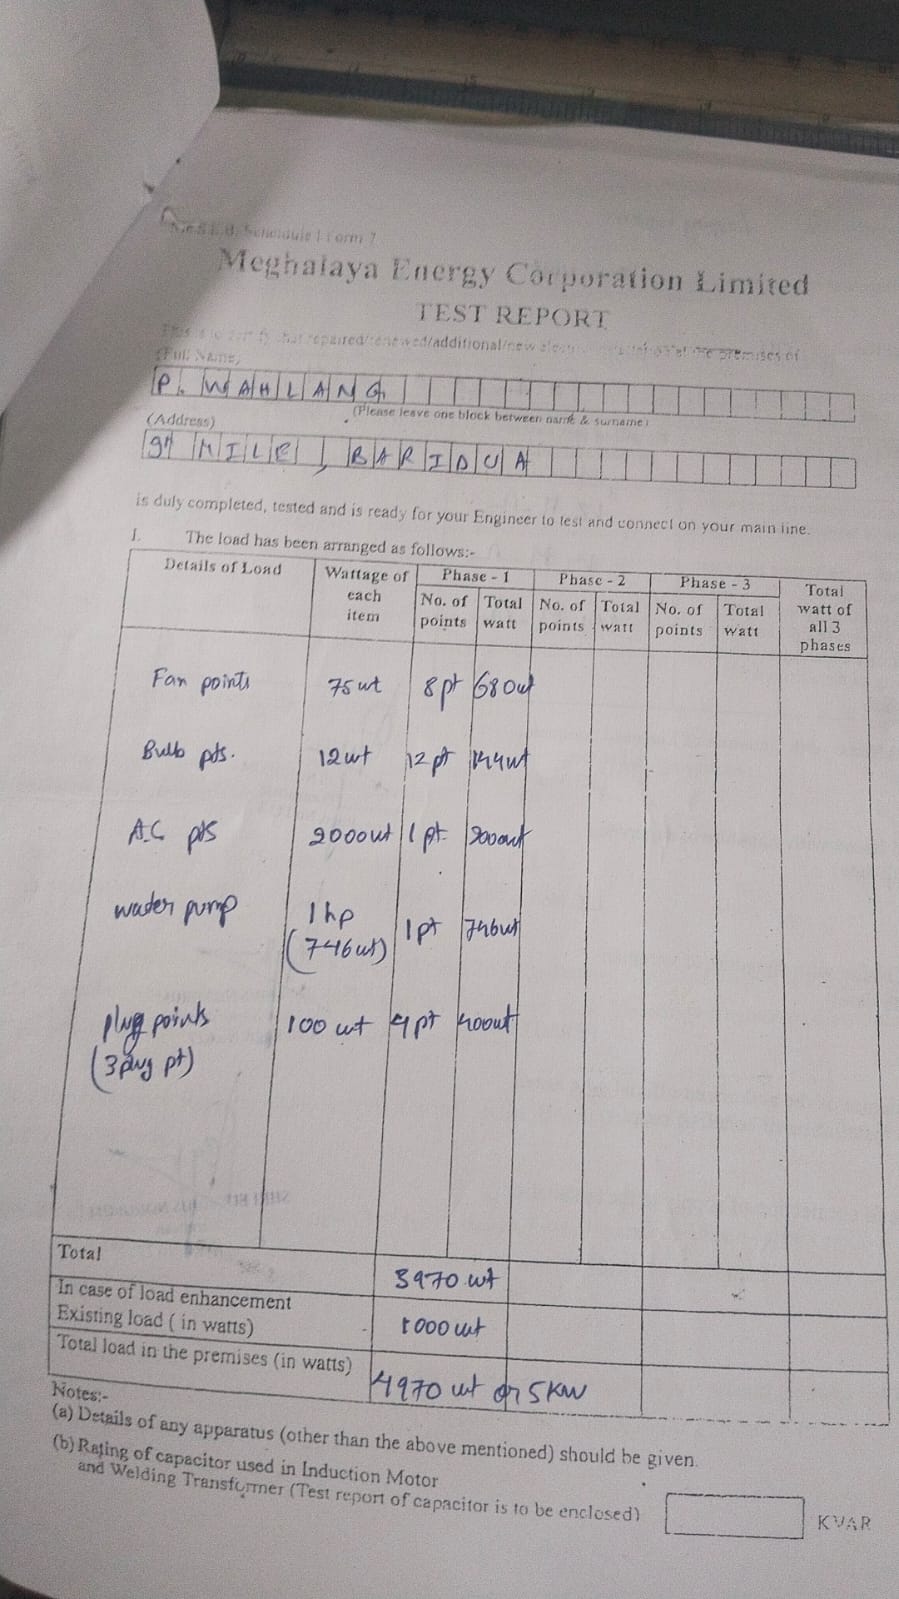 Schedule I Form 7
Meghalaya Energy Corporation Limited
TEST REPORT
This is to certify that repaired/renewed/additional/new at the premises of
(Full Name)
P. WAHLANG
(Please leave one block between name & surname)
(Address)
9th MILE, BARIDUA
is duly completed, tested and is ready for your Engineer to test and connect on your main line.
I. The load has been arranged as follows:-
Details of Load Wattage of each item Phase - 1 Phase - 2 Phase - 3 Total watt of all 3 phases
No. of points Total watt No. of points Total watt No. of points Total watt
Fan points 75 wt 8 pt 680 wt
Bulb pts. 12 wt 12 pt 144 wt
A.C pts 2000 wt 1 pt. 2000 wt
water pump 1 hp (746 wt) 1 pt 746 wt
plug points (3 plug pt) 100 wt 4 pt 400 wt
Total 3970 wt
In case of load enhancement
Existing load ( in watts) 1000 wt
Total load in the premises (in watts) 4970 wt or 5 KW
Notes:-
(a) Details of any apparatus (other than the above mentioned) should be given.
(b) Rating of capacitor used in Induction Motor
and Welding Transformer (Test report of capacitor is to be enclosed) KVAR